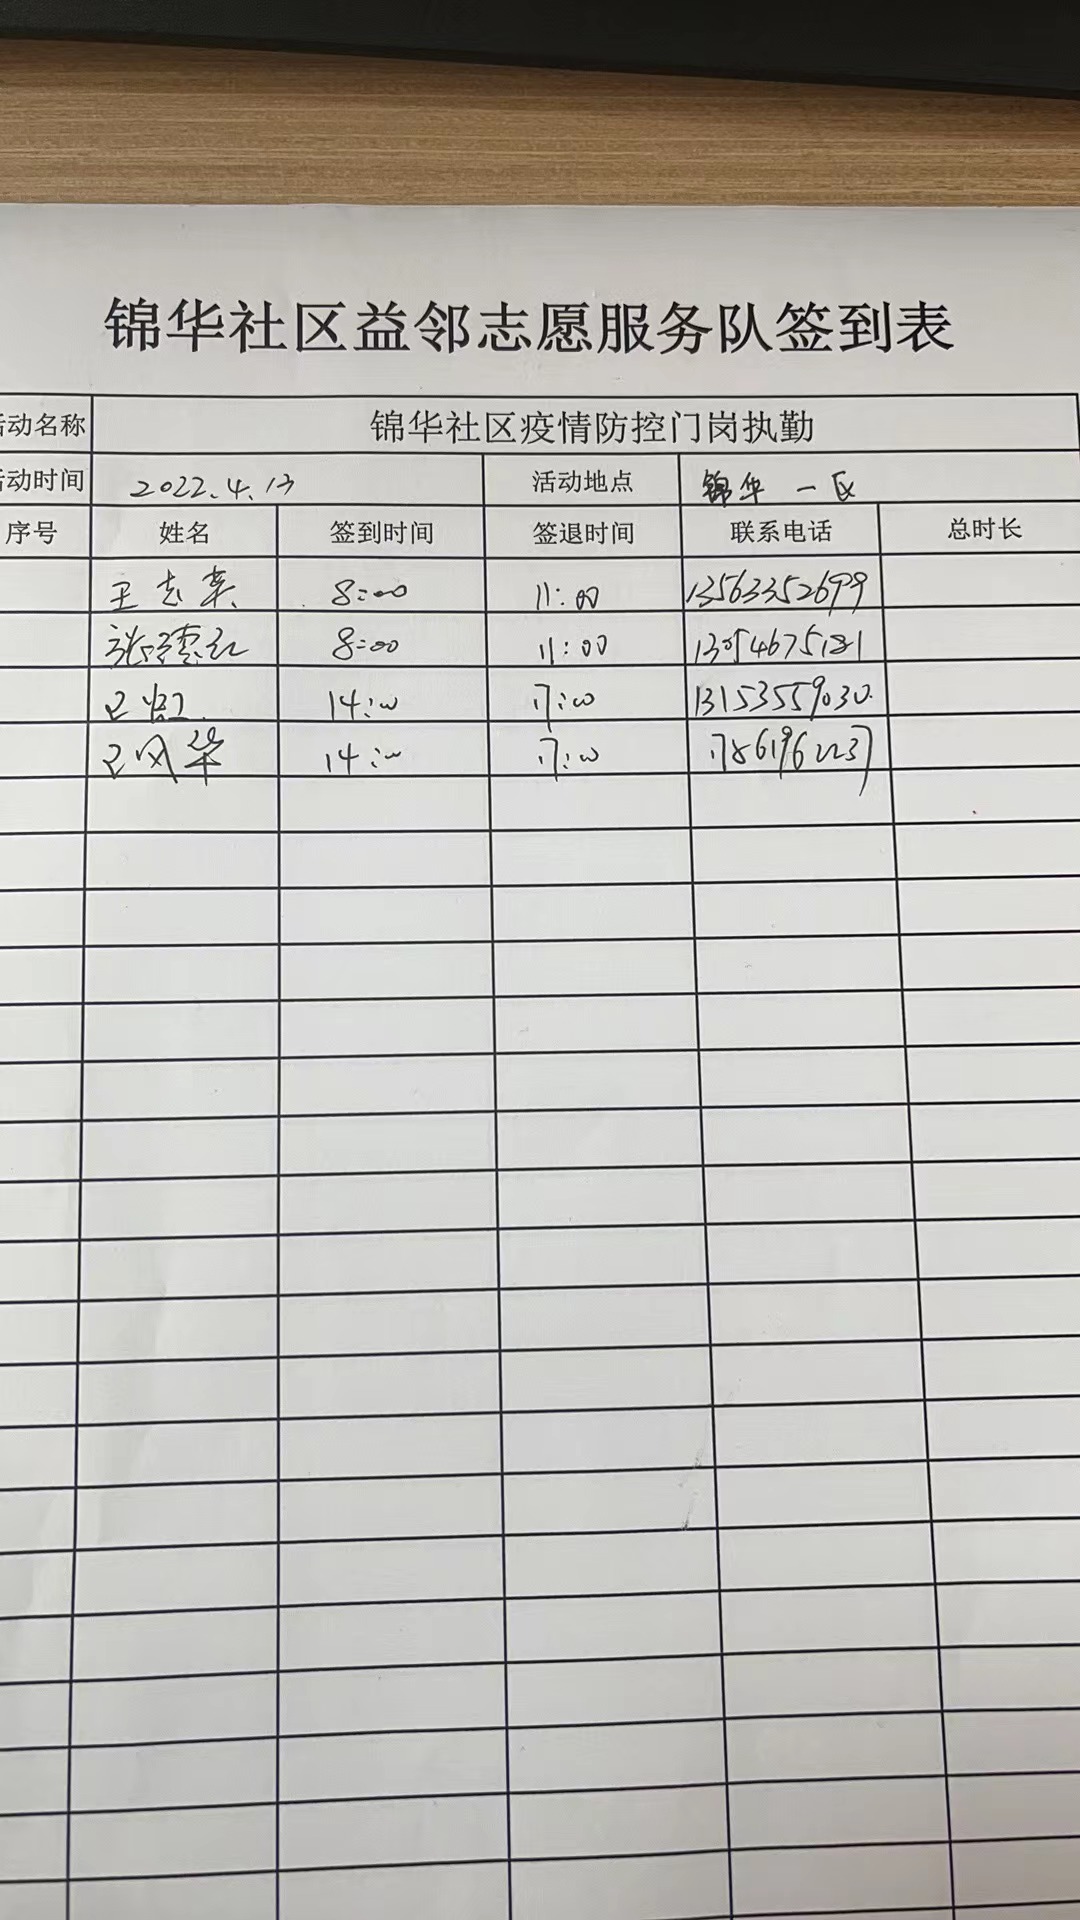 锦华社区益邻志愿服务队签到表
活动名称 锦华社区疫情防控门岗执勤
活动时间 2022.4.13 活动地点 锦华一区
序号 姓名 签到时间 签退时间 联系电话 总时长
王志荣 8:00 11:00 13563352699
8:00 11:00
14:00 17:00 13153559030
14:00 17:00 17861962237